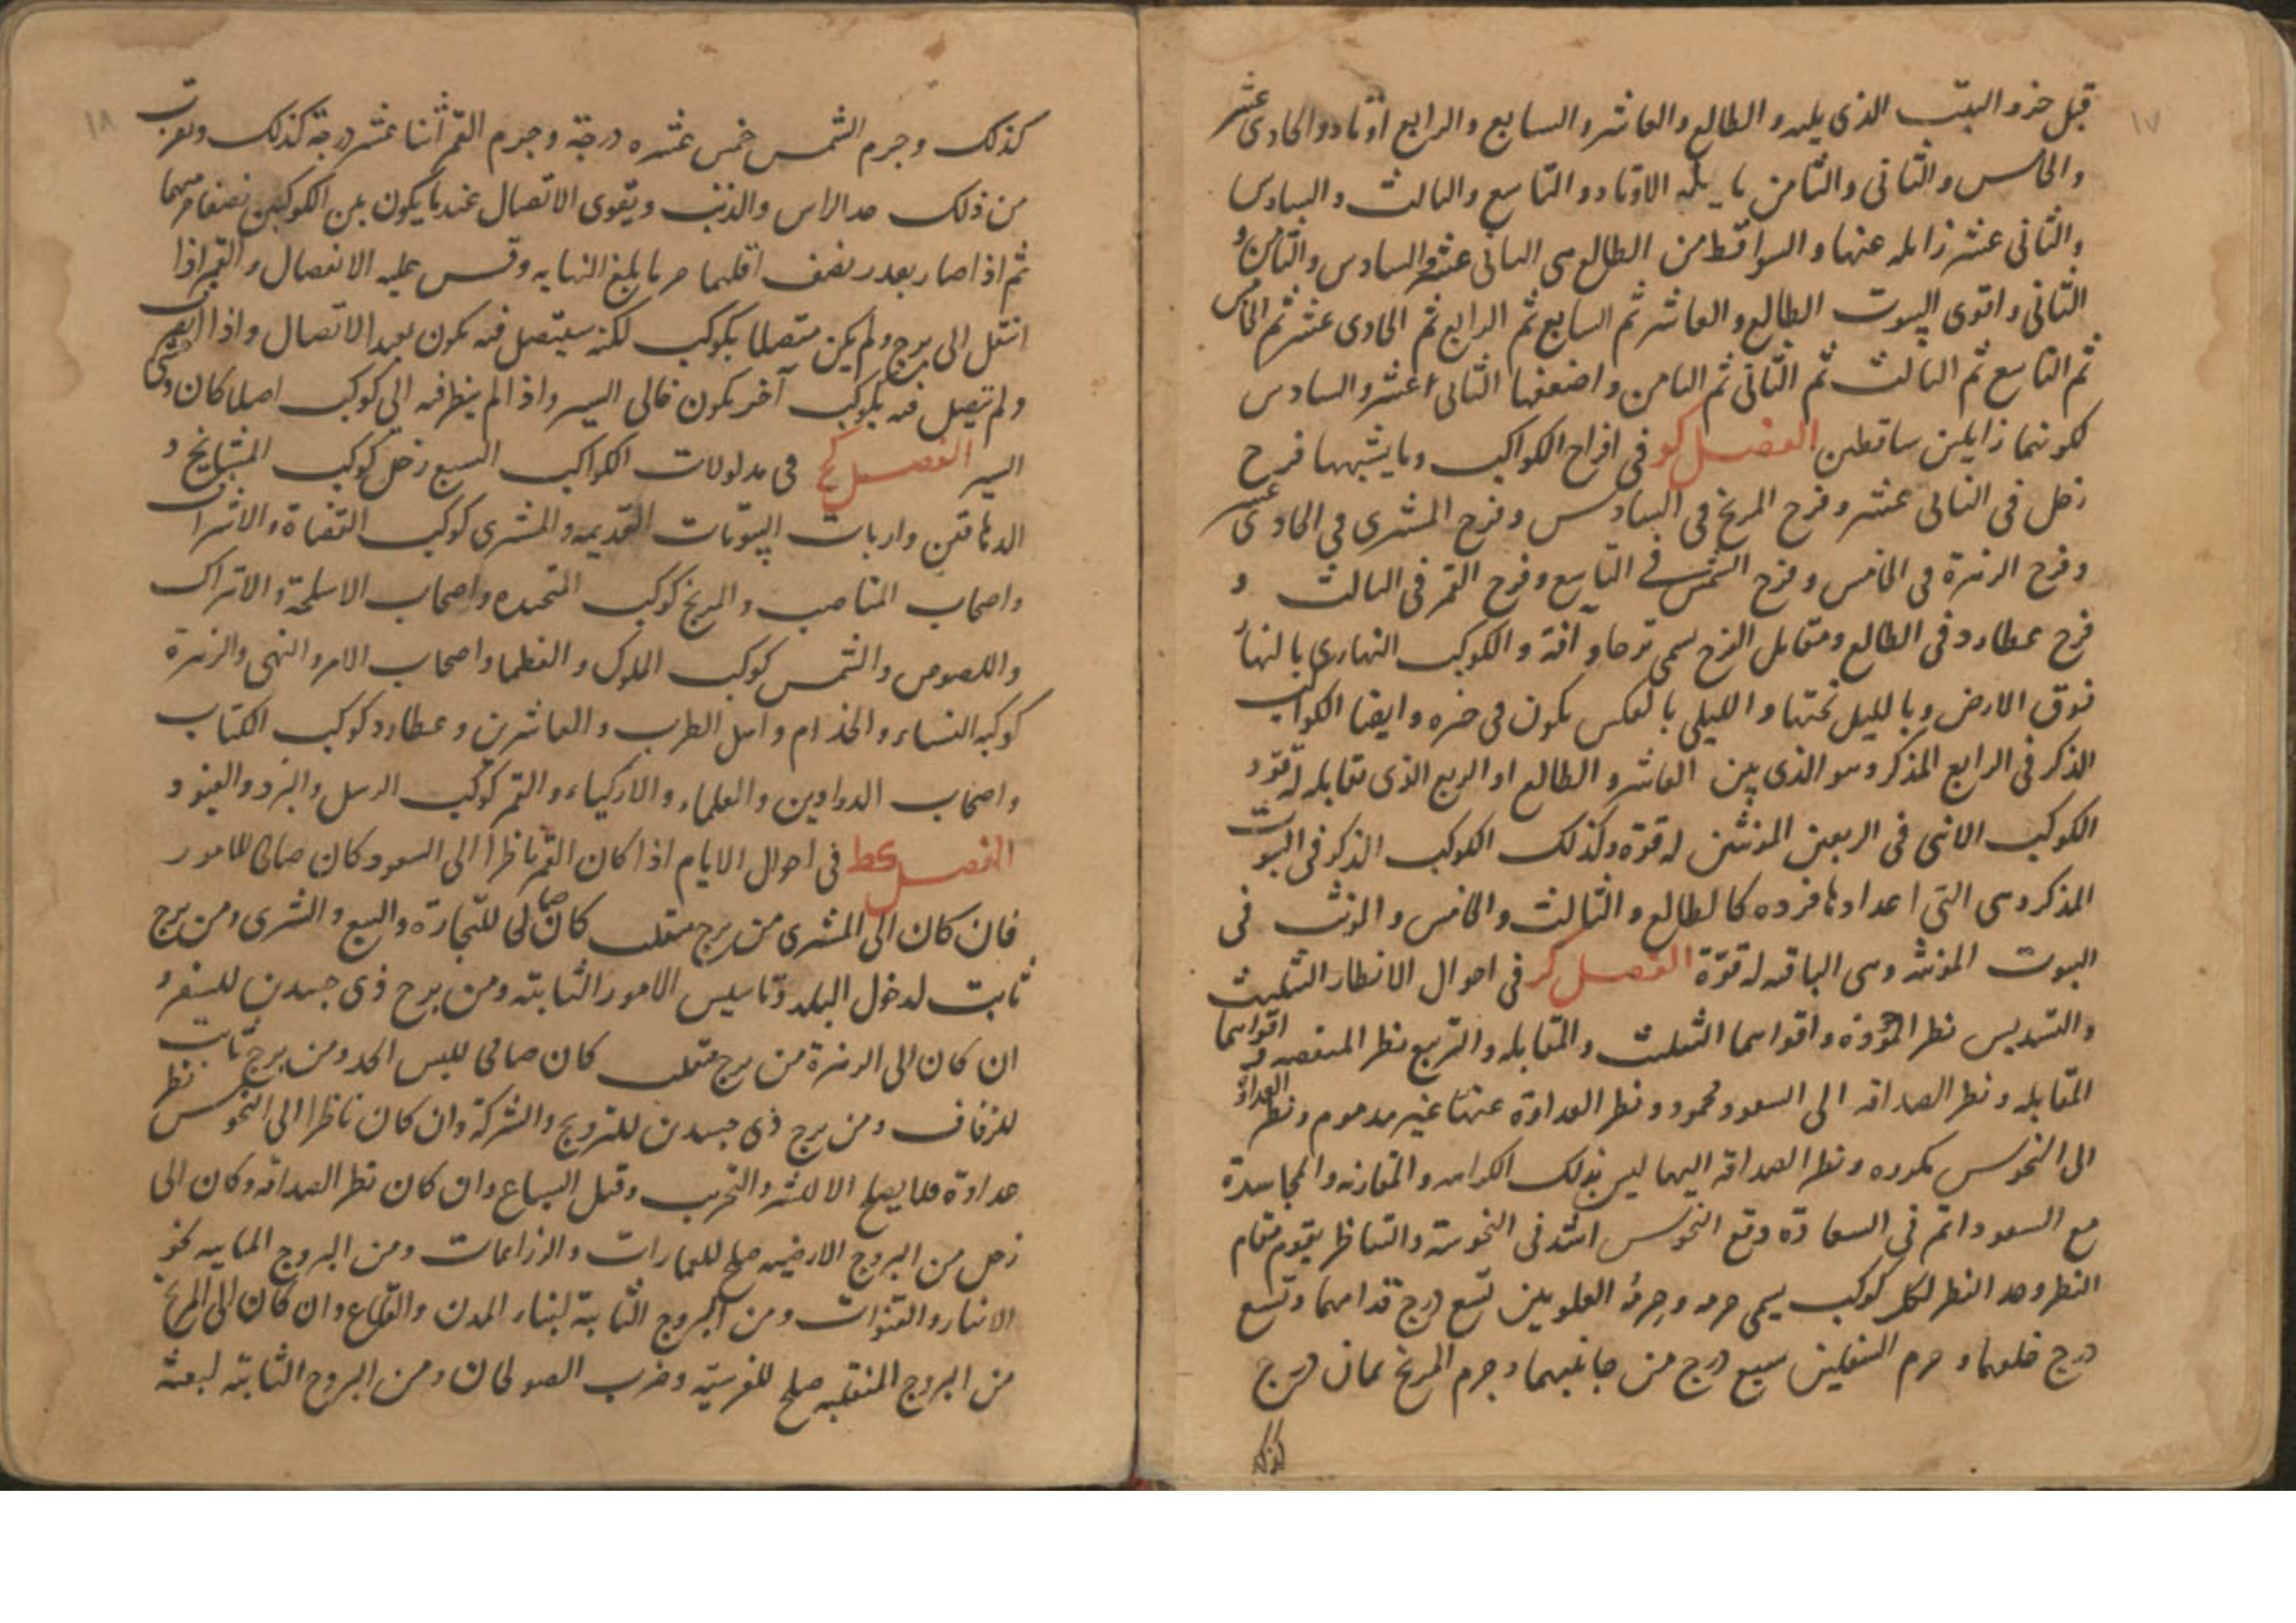 ١٧
قبل حزو البيت الذى يليه والطالع والعاشر والسابع والرابع اوتاد والحادى عشر
والخامس والثانى والثامن مايله الاوتاد والتاسع والثالث والسادس
والثانى عشر زايله عنها والسواقط من الطالع هى الثانى عشر والسادس والثامن و
الثانى واقوى البيوت الطالع والعاشر ثم السابع ثم الرابع ثم الحادى عشر ثم الخامس
ثم التاسع ثم الثالث ثم الثانى ثم الثامن واضعفها الثانى عشر والسادس
لكونهما زايلين ساقطين الفصل كو فى افراح الكواكب وما يشبهها فرح
زحل فى الثانى عشر وفرح المريخ فى السادس وفرح المشترى فى الحادى عشر
وفرح الزهرة فى الخامس وفرح الشمس فى التاسع وفرح القمر فى الثالث و
فرح عطارد فى الطالع ومقابل الفرح يسمى ترحا وآفة والكوكب النهارى بالنهار
فوق الارض وبالليل تحتها والليلى بالعكس يكون فى حيزه وايضا الكواكب
الذكر فى الرابع المذكر وهو الذى بين العاشر والطالع او الربع الذى تقابله له قوة و
الكوكب الانثى فى الربعين المؤنثين له قوة وكذلك الكوكب الذكر فى البيوت
المذكر وهى التى اعدادها فرده كالطالع والثالث والخامس والمؤنث فى
البيوت المؤنثه وهى الباقيه له قوّة الفصل كز فى احوال الانظار التثليث
والتسديس نظر المودّة واقواهما التثليث والمقابله والتربيع نظر المنقصه واقواهما
المقابله ونظر الصداقه الى السعود محمود ونظر العداوة عنها غير مذموم ونظر العداوة
الى النحوس مكروه ونظر الصداقه اليهما ليس بذلك الكراهه والمقارنه والمجاسدة
مع السعود اتم فى السعادة ومع النحوس اشد فى النحوسة والتناظر يقوم مقام
النظر وحد النظر لكل كوكب يسمى جرمه وجرم العلويين تسع درج قدامهما وتسع
درج خلفهما وجرم السفليين سبع درج من جانبيهما وجرم المريخ ثمان درج
كذلك
١٨
كذلك وجرم الشمس خمس عشره درجة وجرم القمر اثنا عشر درجة كذلك ويقرب
من ذلك حد الراس والذنب ويقوى الاتصال عندما يكون بين الكوكبين نصفا جرميهما
ثم اذا صار بقدر نصف اقلهما جرما بلغ النهايه وقس عليه الانفصال والقمر اذا
انتقل الى برج ولم يكن متصلا بكوكب لكنه سيتصل فيه يكون بعيد الاتصال واذا انصرف
ولم يتصل فيه بكوكب آخر يكون خالى السير واذا لم ينظر فيه الى كوكب اصلا كان وحشى
السير الفصل كح فى مدلولات الكواكب السبع زحل كوكب المشايخ و
الدهاقين وارباب البيوتات القديمه والمشترى كوكب القضاة والاشراف
واصحاب المناصب والمريخ كوكب المتحيده واصحاب الاسلحة والاتراك
واللصوص والشمس كوكب الملوك والعظما واصحاب الامر والنهى والزهرة
كوكب النساء والخدام واهل الطرب والعاشرين وعطارد كوكب الكتاب
واصحاب الدواوين والعلماء والاذكياء والقمر كوكب الرسل والبرد والفيود
الفصل كط فى احوال الايام اذا كان القمر ناظرا الى السعود كان صالحا للامور
فان كان الى المشترى من برج منقلب كان صالحا للتجارة والبيع والشرى ومن برج
ثابت لدخول البلد وتاسيس الامور الثابته ومن برج ذى جسدين للسفر و
ان كان الى الزهرة من برج منقلب كان صالحا للبس الجدد ومن برج ثابت
للزفاف ومن برج ذى جسدين للتزويج والشركة وان كان ناظرا الى النحوس نظر
عداوة فلا يصلح الا للشر والتخريب وقتل السباع وان كان نظر الصداقه وكان الى
زحل من البروج الارضيه صلح للعمارات والزراعات ومن البروج المايیه لحفر
الانهار والقنوات ومن البروج الثابتة لبناء المدن والقلاع وان كان الى المريخ
من البروج المنقلبه صلح للفرسيّة وضرب الصولجان ومن البروج الثابته لبعثه